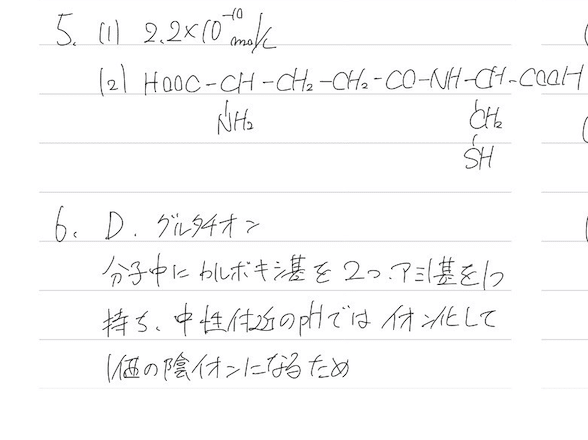 5. (1) 2.2×10⁻¹⁰ mol/L
(2) HOOC-CH-CH₂-CH₂-CO-NH-CH-COOH
NH₂ CH₂
SH
6. D. グルタチオン
分子中にカルボキシ基を2つ、アミノ基を1つ
持ち、中性付近のpHではイオン化して
1価の陰イオンになるため